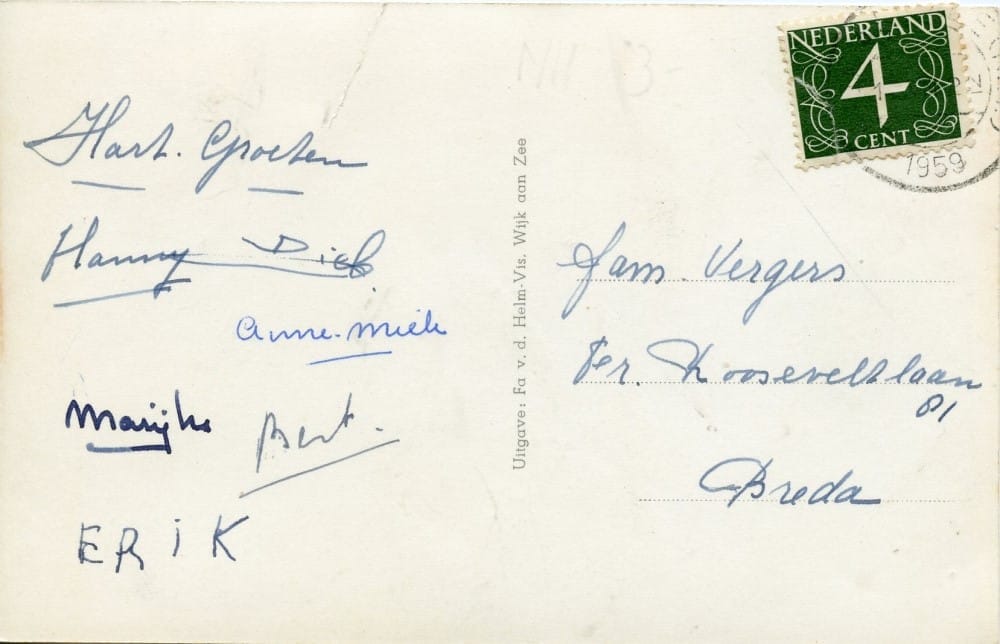 Hart. Groeten
Hanny Dick.
Anne-Miek
Marijke
Bert.
ERIK
Uitgave: Fa v. d. Helm-Vis. Wijk aan Zee
NEDERLAND
4
CENT
1959
Fam. Vergers
Fr. Rooseveltlaan
81
Breda